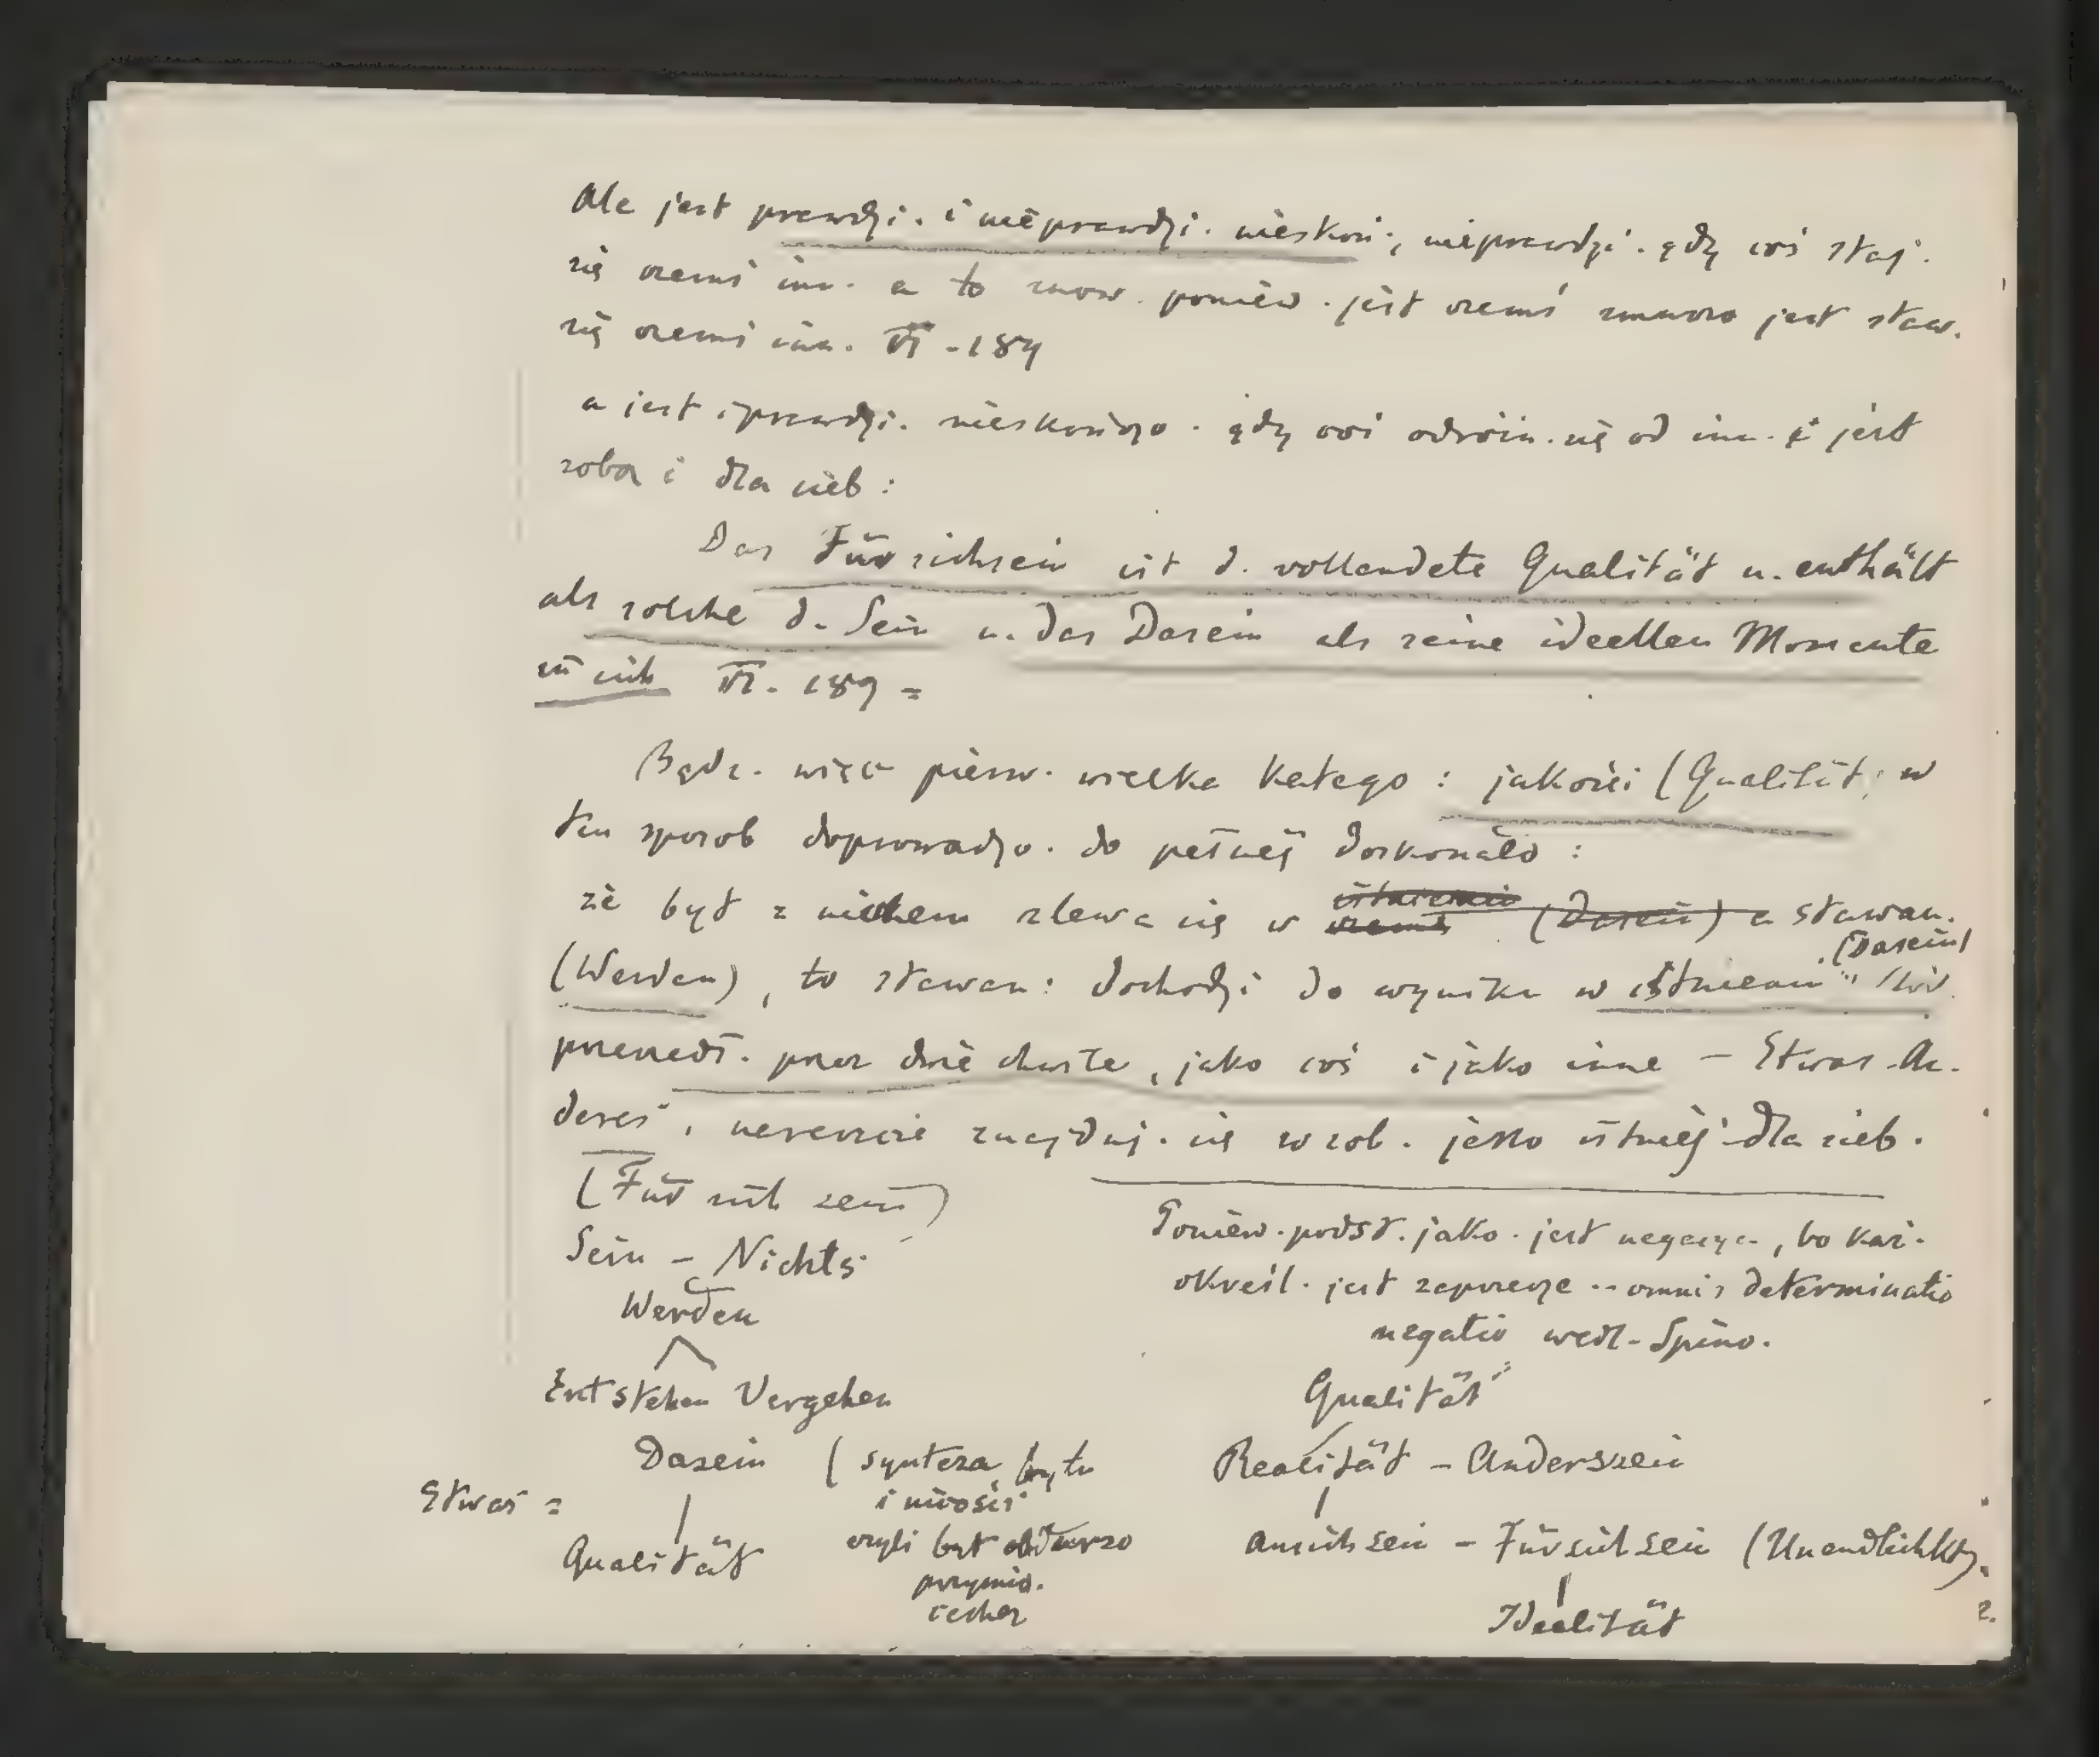 Ale jest prawdzi. i nieprawdzi. nieskoń., nieprawdzi. gdy coś staj.
się czemś inn. a to znow. poniew. jest czemś znowu jest staw.
się czemś inn. VI - 184
a jest prawdzi. nieskończo. gdy coś odróżn. się od inn. i jest
sobą i dla sieb:
Das Fürsichsein ist d. vollendete Qualität u. enthält
als solche d. Sein u. das Dasein als seine ideellen Momente
in sich VI. 189 =
Będz. więc pierw. wielka katego: jakości (Qualität; w
ten sposób doprowadzo. do pełnej doskonało:
że byt z niebem zlewa się w stawan.
(Werden), to stawan: dochodzi do wyniku w istnieniu" (Dasein)
poszedł. przez dwie chwile, jako coś i jako inne — Etwas An-
deres", nareszcie znajduj. się w sob. jako istniej. dla sieb.
(Für sich sein)
Sein — Nichts
Werden
Entstehen Vergehen
Dasein (synteza bytu
i nicości
Etwas =
Qualität czyli byt obdarzo
przymio.
cechą
Poniew. podst. jako. jest negacya, bo każ.
określ. jest zaprzecze -- omnis determinatio
negatio wedł. Spino.
Qualität
Realität — Anderssein
Ansichsein — Fürsichsein (Unendlichkt).
Idealität
2.